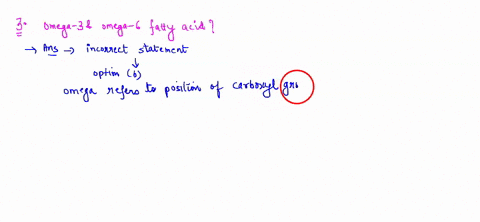 3. omega-3 & omega-6 fatty acid?
→ Ans → incorrect statement
↓
option (b)
omega refers to position of carboxyl gro